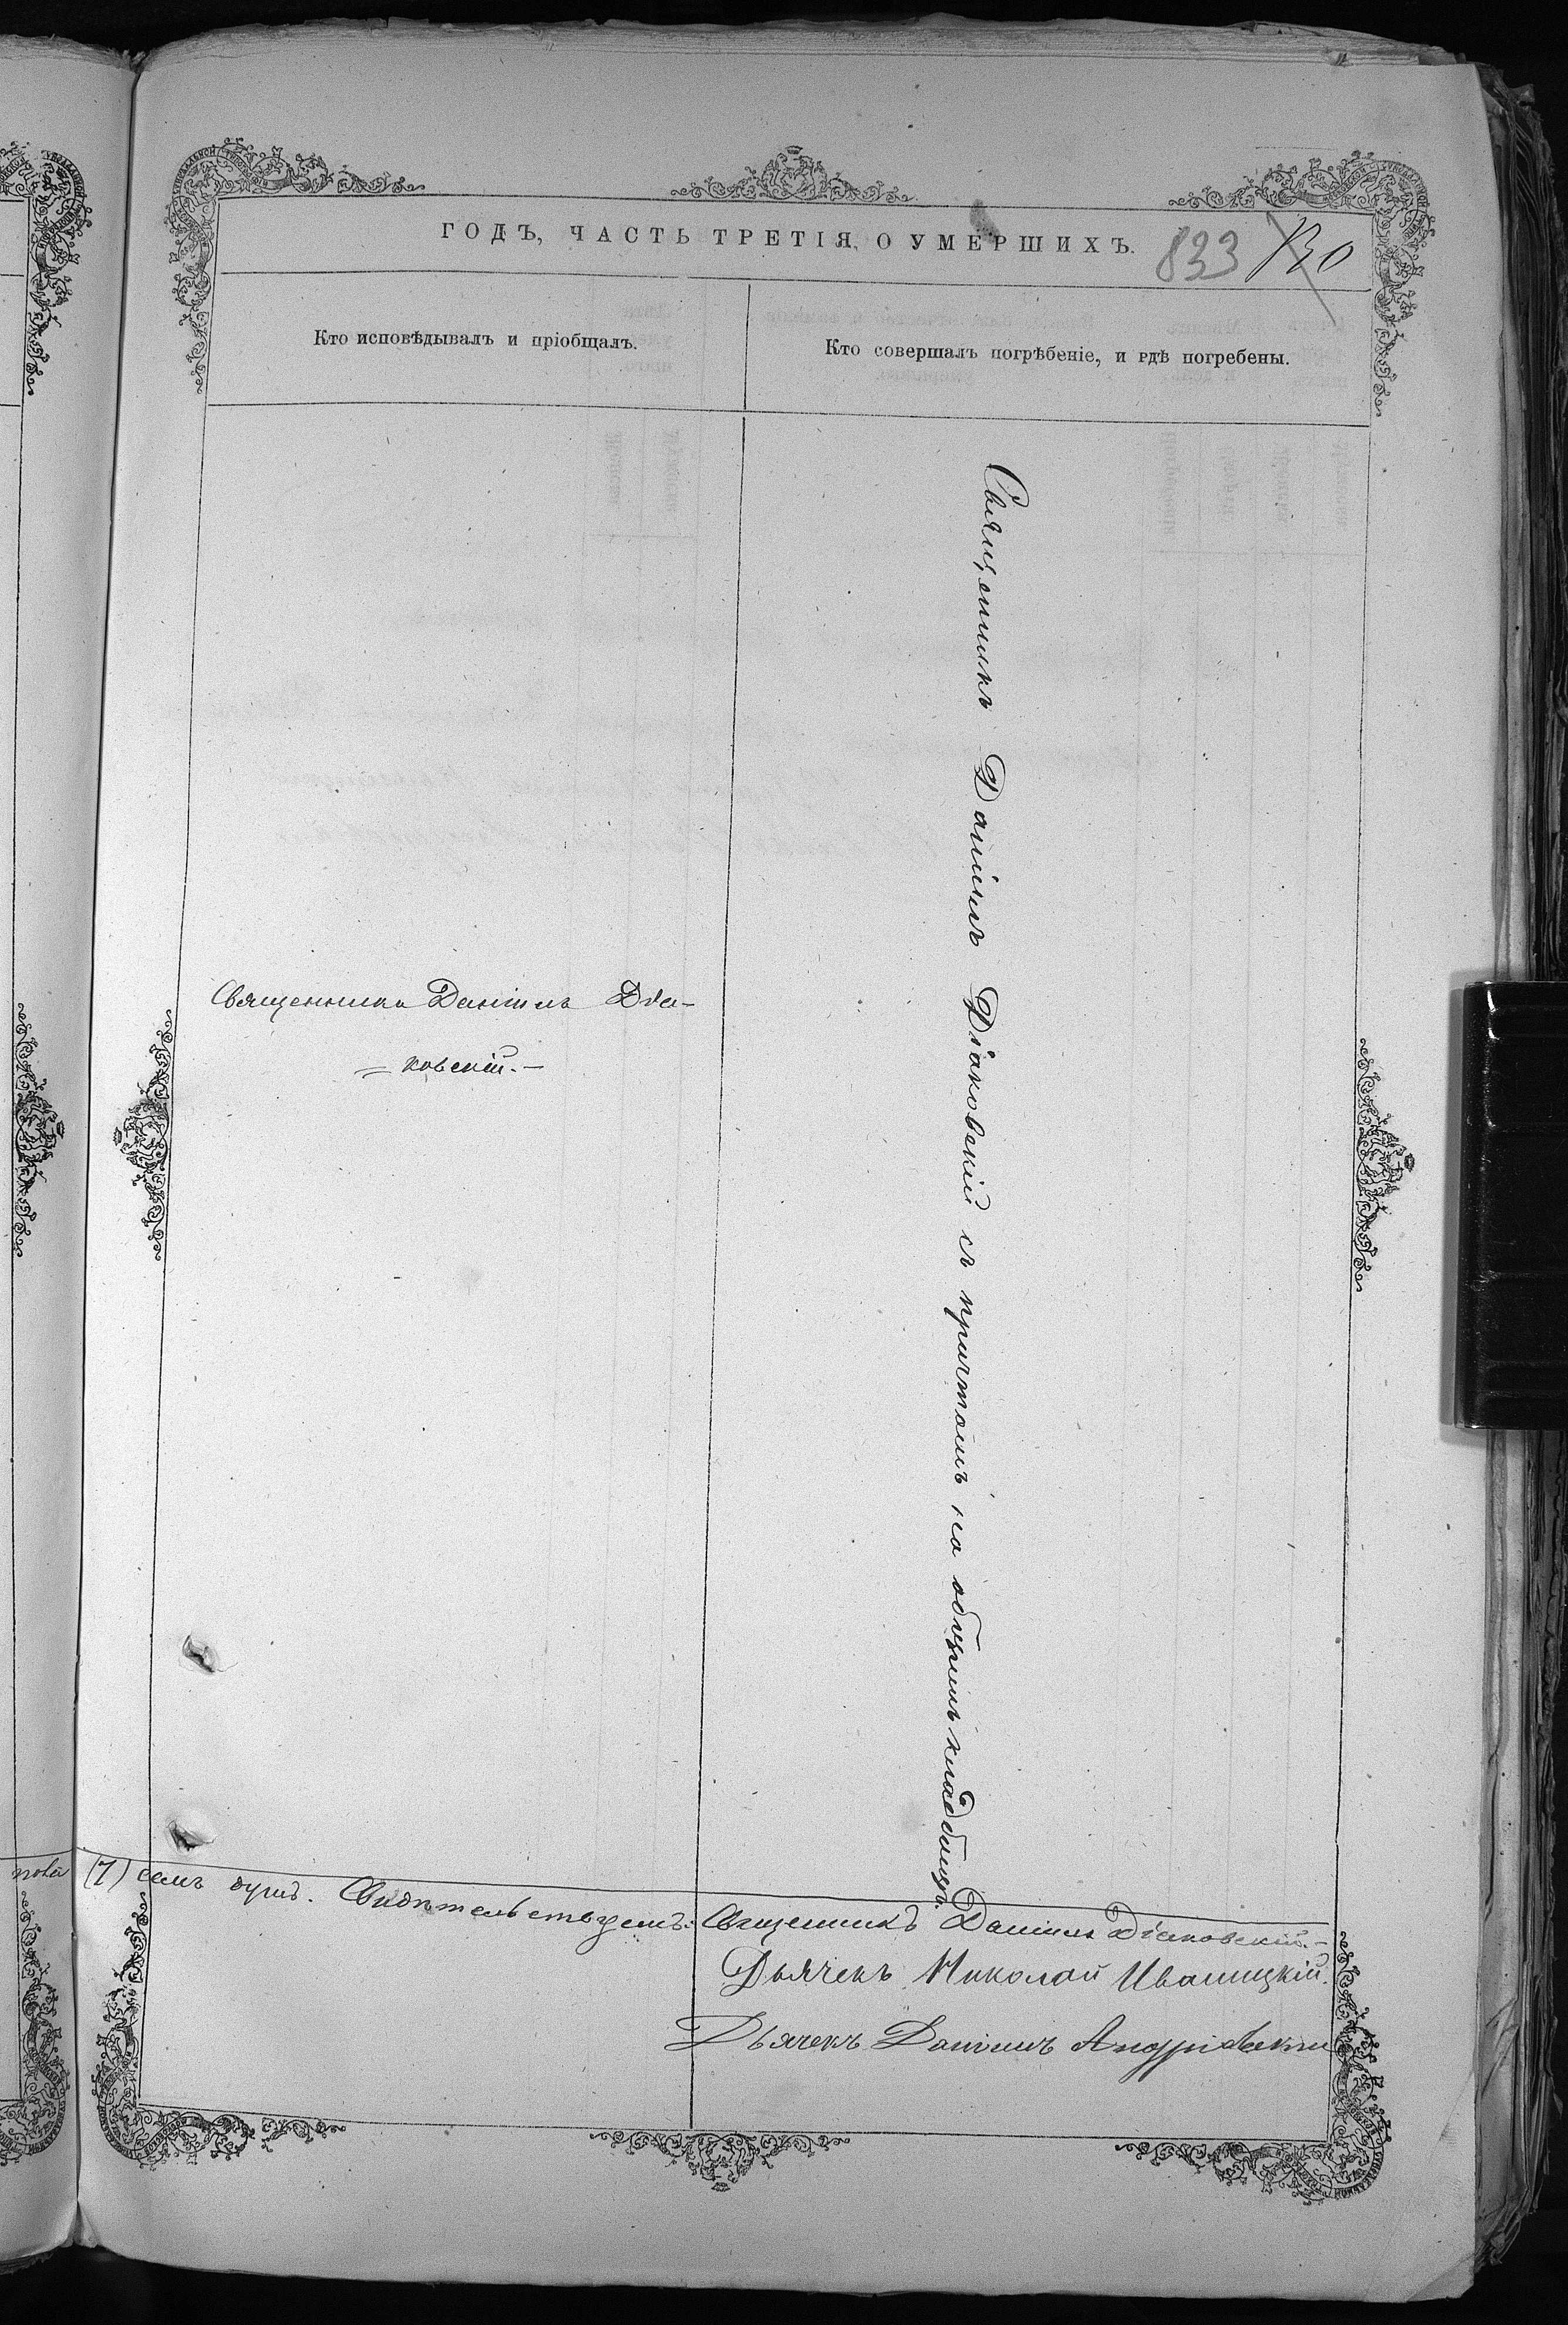 ГОДЪ, ЧАСТЬ ТРЕТІЯ, О УМЕРШИХЪ.
833 130
Кто исповѣдывалъ и пріобщалъ.
Кто совершалъ погрѣбеніе, и гдѣ погребены.
Священникъ Даніилъ Діа-
= ковскій. –
Священникъ Даніилъ Діаковскій съ причтомъ на общемъ кладбищѣ.
(7) семъ душъ. Свидѣтельствуемъ: Священникъ Даніилъ Діаковскій. –
Дьячекъ Николай Иваницкій.
Дьячекъ Даніилъ Андріевскій